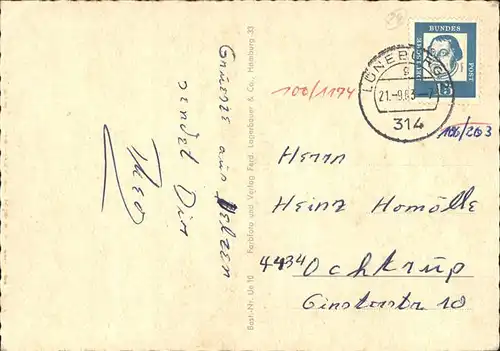 Gruesse aus Uelzen
sendet Dir
Theo
Best.-Nr. Ue 10 Farbfoto und Verlag Ferd. Lagerbauer & Co., Hamburg 33
DEUTSCHE
BUNDES
POST
15
LÜNEBURG
g
21.-9.63-7
314
106/1174
186/263
Herrn
Heinz Homölle
4434 Ochtrup
Ginsterstr 10